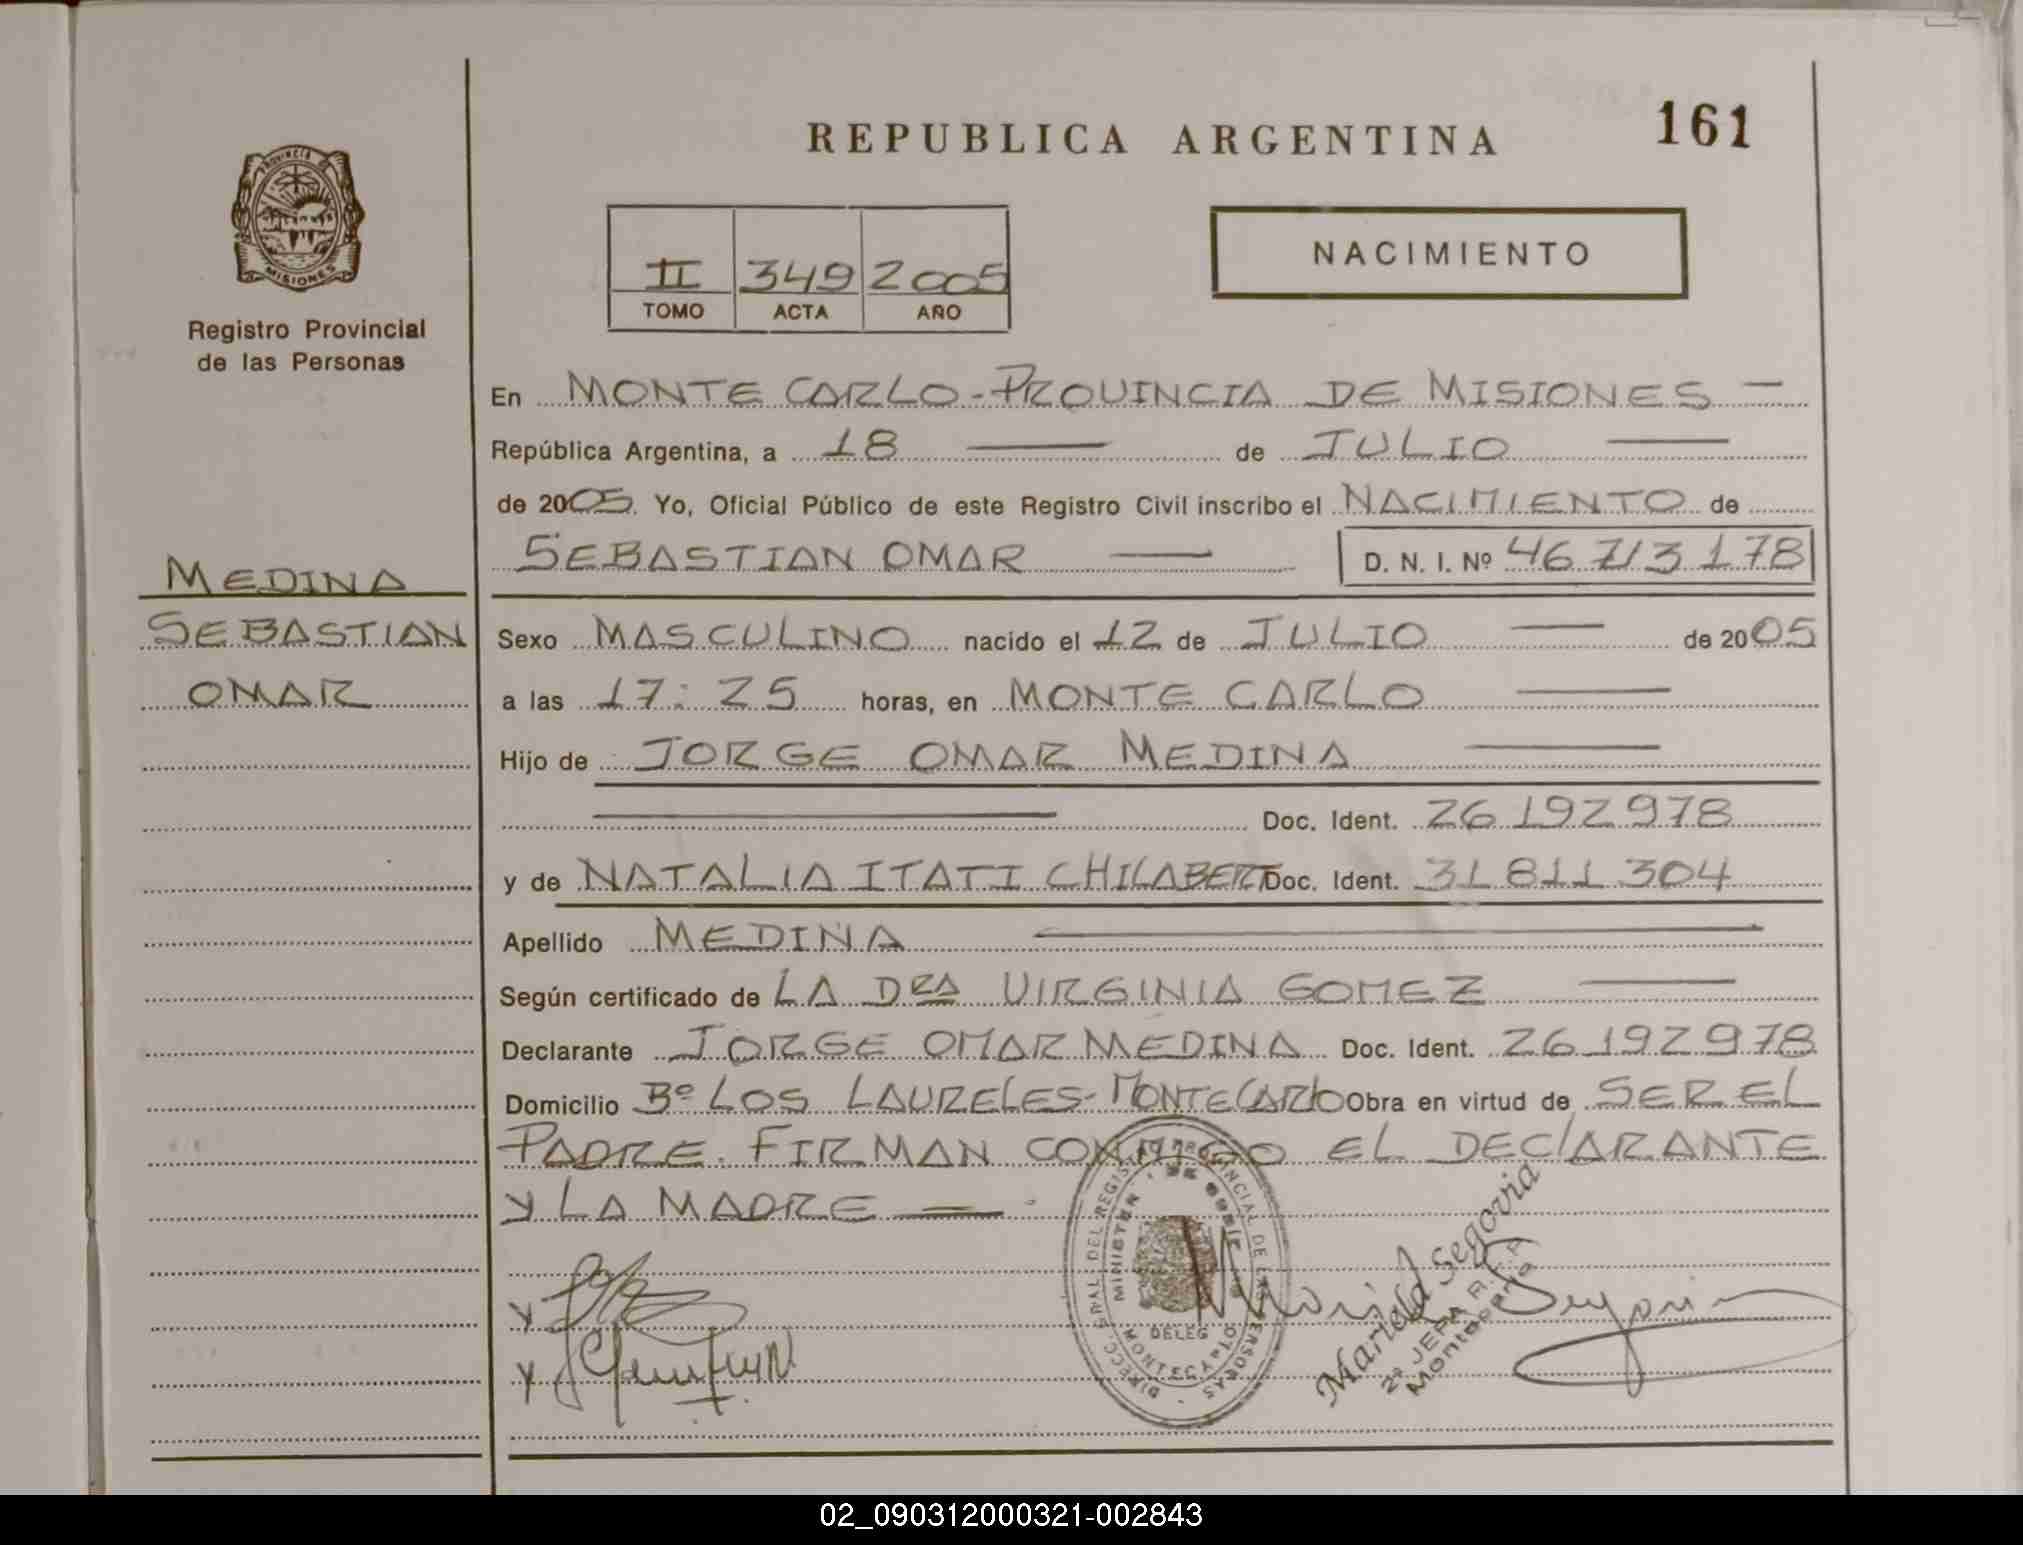 REPUBLICA ARGENTINA
161
PROVINCIA DE
MISIONES
Registro Provincial
de las Personas
II 349 2005
TOMO ACTA AÑO
NACIMIENTO
En MONTE CARLO - PROVINCIA DE MISIONES —
República Argentina, a 18 — de JULIO —
de 2005. Yo, Oficial Público de este Registro Civil inscribo el NACIMIENTO de
SEBASTIAN OMAR — D. N. I. Nº 46.713.178
MEDINA
SEBASTIAN
OMAR
Sexo MASCULINO nacido el 12 de JULIO — de 2005
a las 17:25 horas, en MONTE CARLO —
Hijo de JORGE OMAR MEDINA —
— Doc. Ident. 26.192.978
y de NATALIA ITATI CHILABERT Doc. Ident. 31.811.304
Apellido MEDINA —
Según certificado de LA DRA VIRGINIA GOMEZ —
Declarante JORGE OMAR MEDINA Doc. Ident. 26.192.978
Domicilio Bº LOS LAURELES - MONTECARLO Obra en virtud de SER EL
PADRE. FIRMAN CONMIGO EL DECLARANTE
Y LA MADRE —
DIRECC. GRAL DEL REGISTRO PROVINCIAL DE LAS PERSONAS
MINISTER DE GOBIE
DELEG
MONTECARLO
Mariela Segovia
2ª JEFA
Montecarlo
02_090312000321-002843